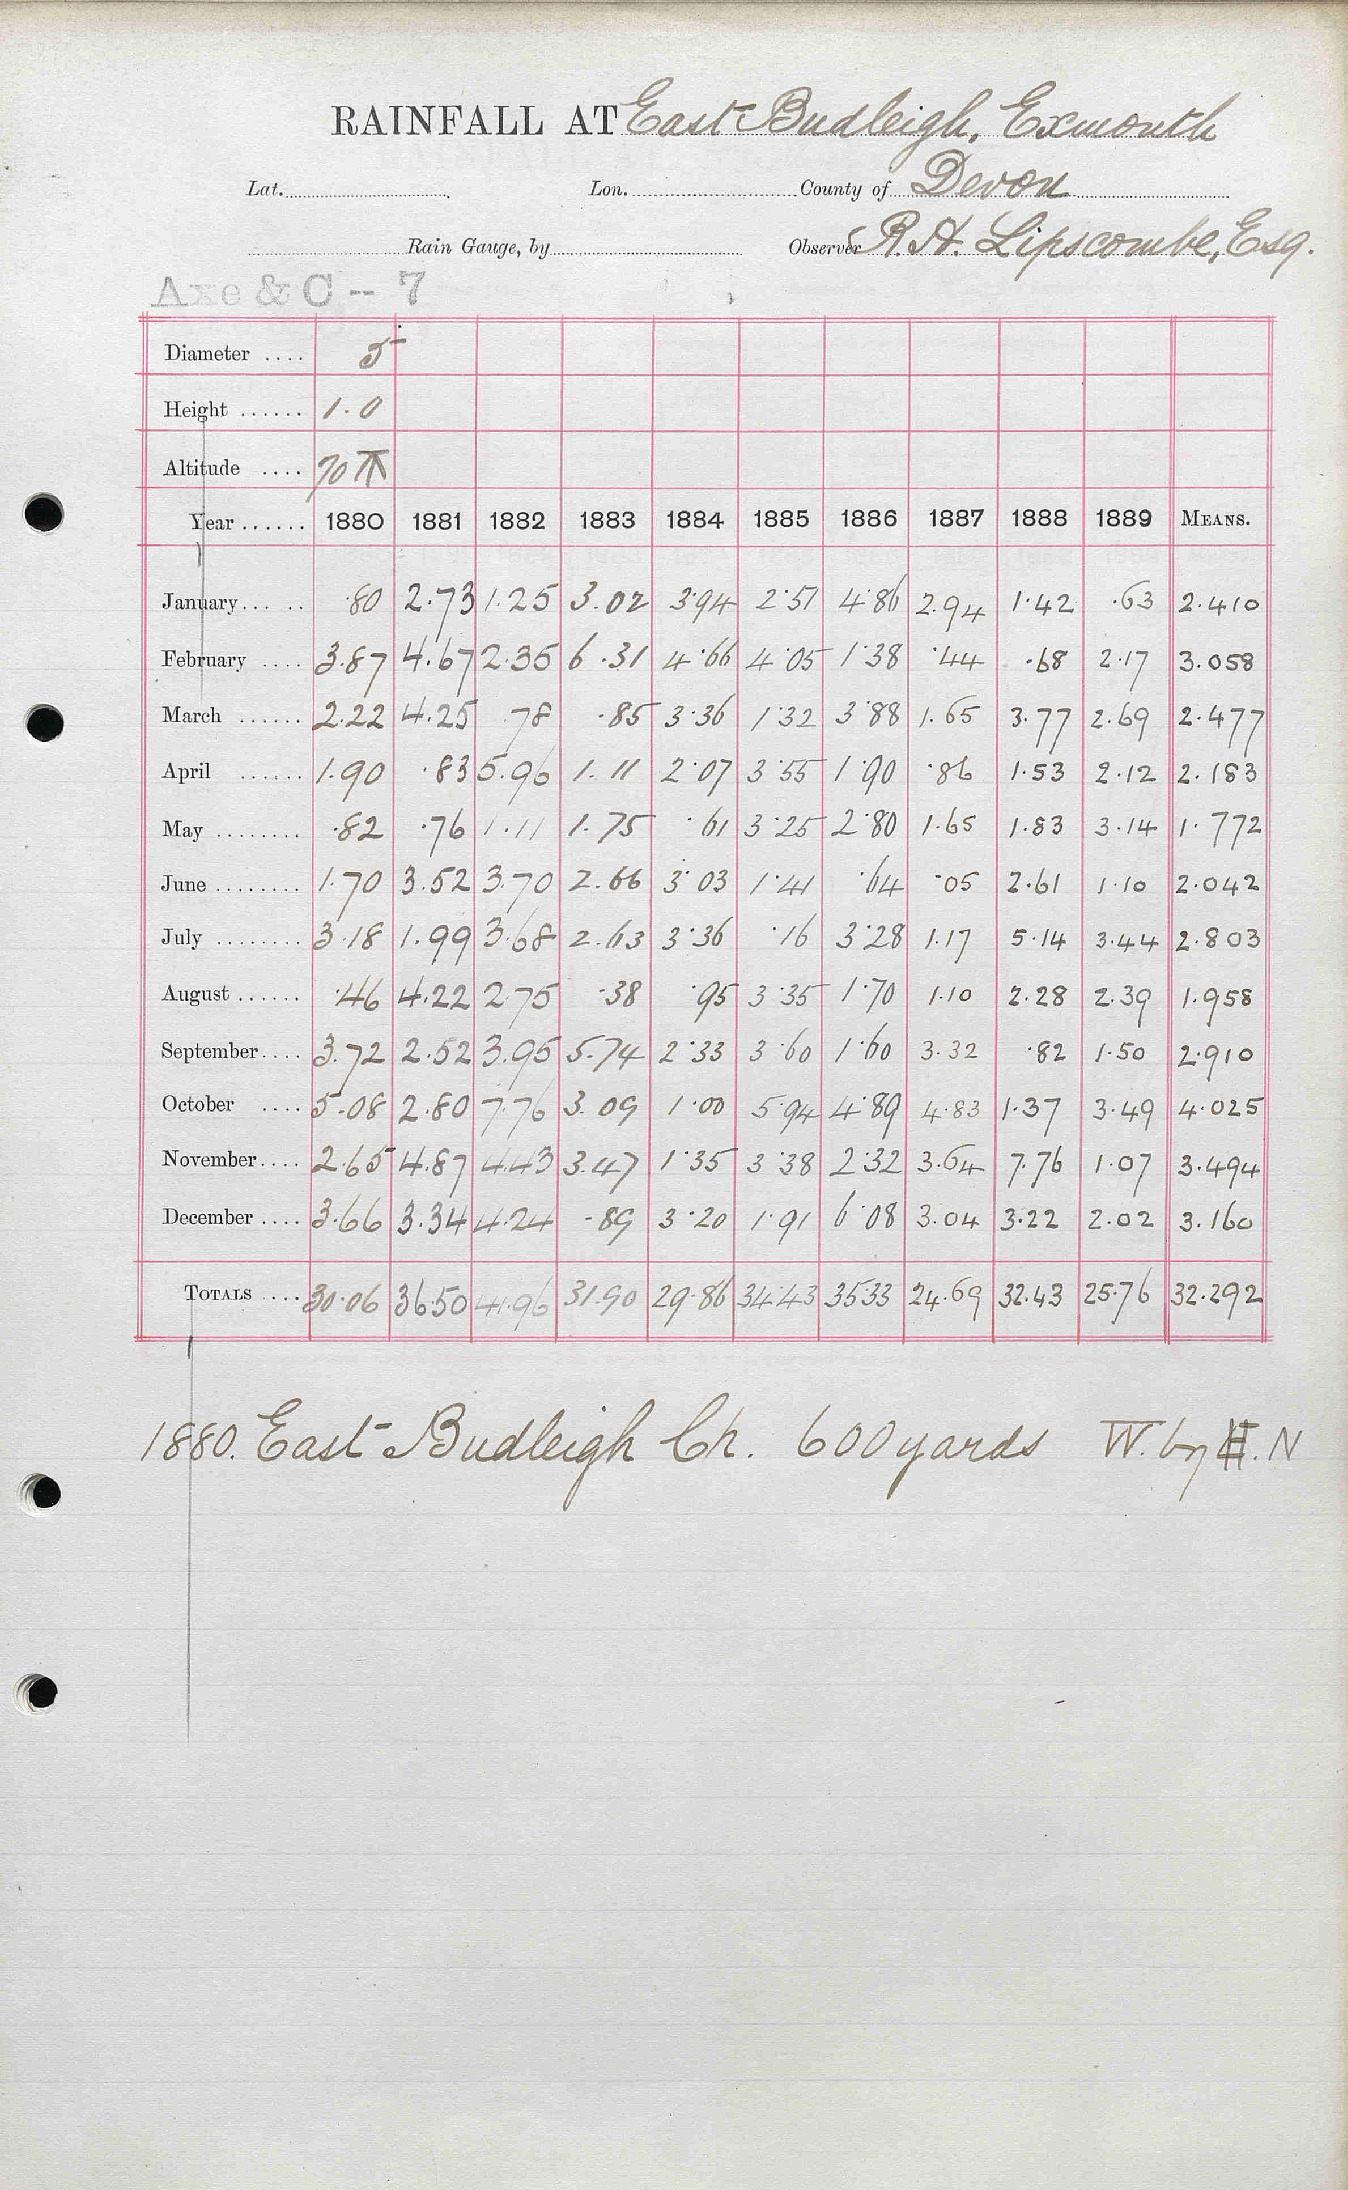 RAINFALL AT East Budleigh, Exmouth
Lat. Lon. County of Devon
Rain Gauge, by Observer R. H. Lipscombe, Esq.
Axe & C -- 7
Diameter .... 5
Height ...... 1.0
Altitude .... 70
Year ...... 1880 1881 1882 1883 1884 1885 1886 1887 1888 1889 MEANS.
January... .. .80 2.73 1.25 3.02 3.94 2.51 4.86 2.94 1.42 .63 2.410
February .... 3.87 4.67 2.35 6.31 4.66 4.05 1.38 .44 .68 2.17 3.058
March ...... 2.22 4.25 .78 .85 3.36 1.32 3.88 1.65 3.77 2.69 2.477
April ...... 1.90 .83 5.96 1.11 2.07 3.55 1.90 .86 1.53 2.12 2.183
May ........ .82 .76 1.11 1.75 .61 3.25 2.80 1.65 1.83 3.14 1.772
June ........ 1.70 3.52 3.70 2.66 3.03 1.41 .64 .05 2.61 1.10 2.042
July ........ 3.18 1.99 3.68 2.63 3.36 .16 3.28 1.17 5.14 3.44 2.803
August ...... .46 4.22 2.75 .38 .95 3.35 1.70 1.10 2.28 2.39 1.958
September.... 3.72 2.52 3.95 5.74 2.33 3.60 1.60 3.32 .82 1.50 2.910
October .... 5.08 2.80 7.76 3.09 1.00 5.94 4.89 4.83 1.37 3.49 4.025
November.... 2.65 4.87 4.43 3.47 1.35 3.38 2.32 3.64 7.76 1.07 3.494
December .... 3.66 3.34 4.24 .89 3.20 1.91 6.08 3.04 3.22 2.02 3.160
TOTALS .... 30.06 36.50 41.96 31.90 29.86 34.43 35.33 24.69 32.43 25.76 32.292
1880. East Budleigh Ch. 600 yards W. by N